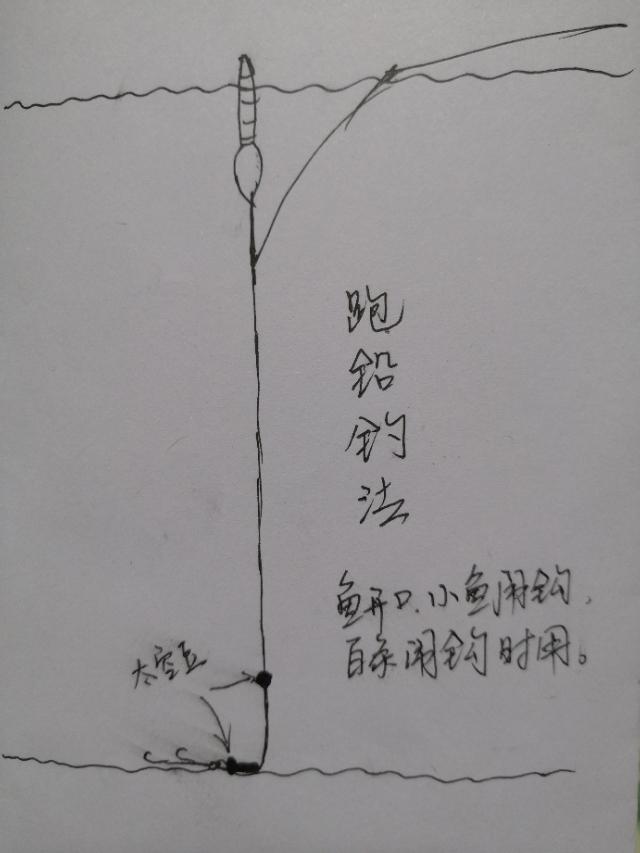 跑铅钓法
鱼开口.小鱼闹钩,
百条闹钩时用。
太空豆